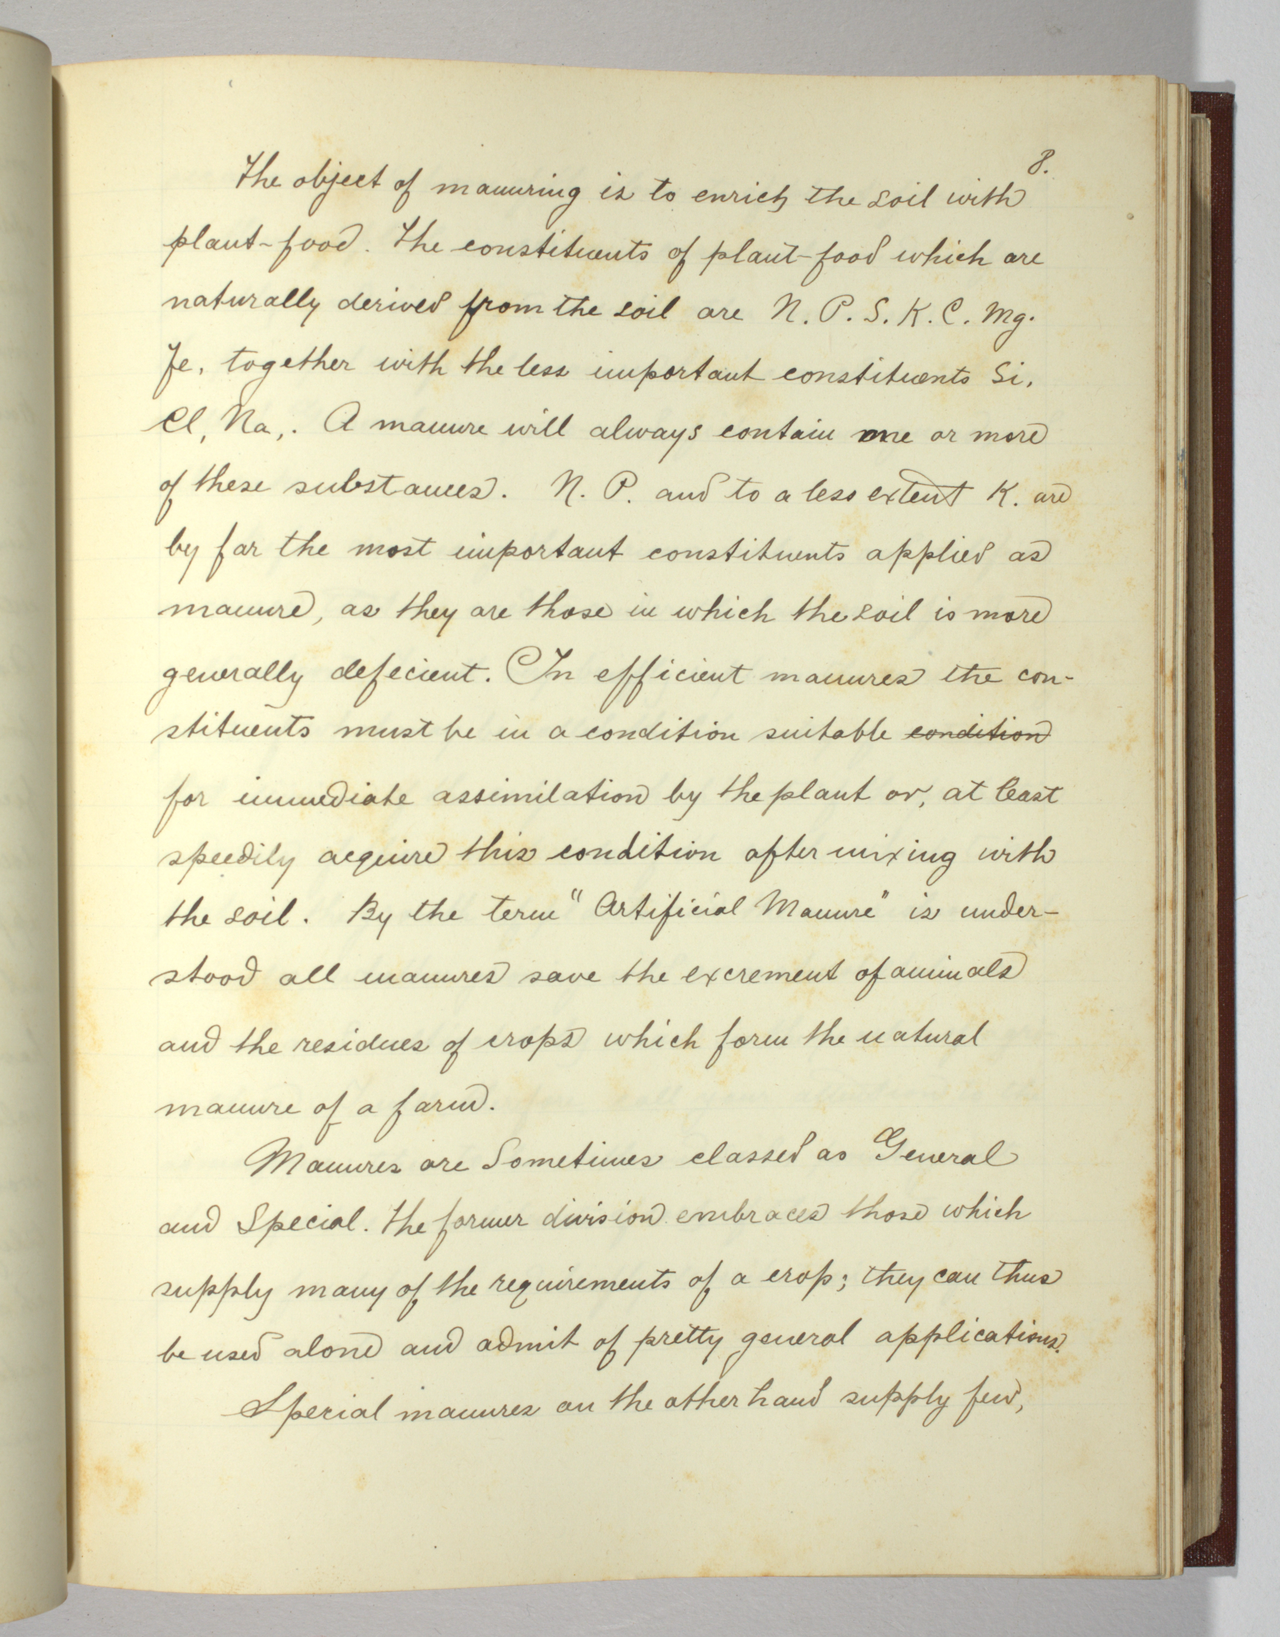 8.
The object of manuring is to enrich the soil with
plant-food. The constituents of plant-food which are
naturally derived from the soil are N. P. S. K. C. Mg.
Fe. together with the less important constituents Si.
Cl, Na,. A manure will always contain one or more
of these substances. N. P. and to a less extent K. are
by far the most important constituents applied as
manure, as they are those in which the soil is more
generally defecient. In efficient manures the con-
stituents must be in a condition suitable condition
for immediate assimilation by the plant or, at least
speedily acquire this condition after mixing with
the soil. By the term "Artificial Manure" is under-
stood all manures save the excrement of animals
and the residues of crops which form the natural
manure of a farm.
Manures are Sometimes classed as General
and Special. The former division embraces those which
supply many of the requirements of a crop; they can thus
be used alone and admit of pretty general applications.
Special manures on the other hand supply few,